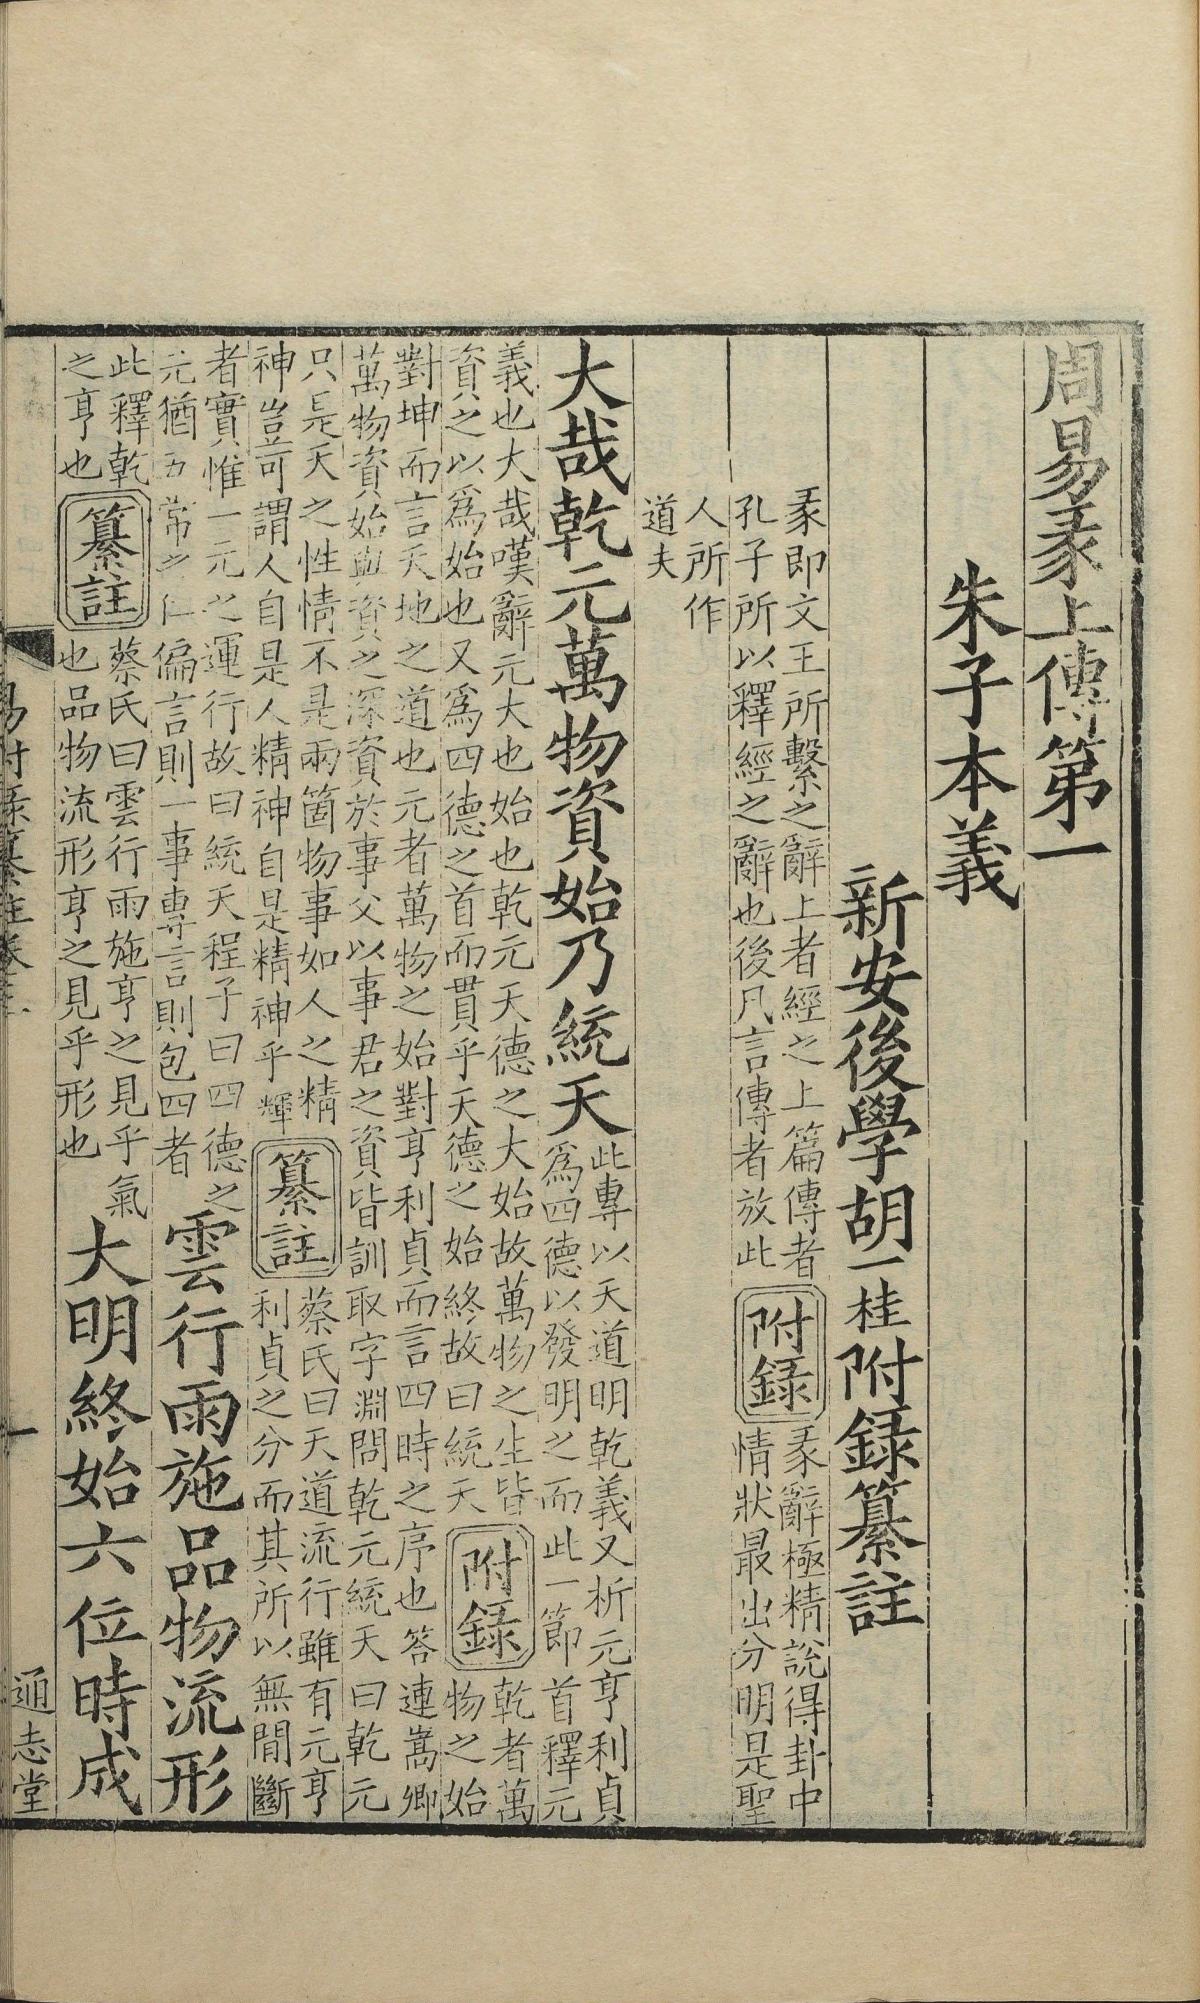 周易彖上傳第一
朱子本義
新安後學胡一桂附録纂註
彖即文王所繫之辭上者經之上篇傳者
孔子所以釋經之辭也後凡言傳者放此
附録
彖辭極精說得卦中
情狀最出分明是聖
人所作
道夫
大哉乾元萬物資始乃統天
此專以天道明乾義又析元亨利貞
爲四德以發明之而此一節首釋元
義也大哉嘆辭元大也始也乾元天德之大始故萬物之生皆
資之以爲始也又爲四德之首而貫乎天德之始終故曰統天
附録
乾者萬
物之始
對坤而言天地之道也元者萬物之始對亨利貞而言四時之序也答連嵩卿
萬物資始血資之深資於事父以事君之資皆訓取字淵問乾元統天曰乾元
只是天之性情不是兩箇物事如人之精
神豈可謂人自是人精神自是精神乎輝
纂註
蔡氏曰天道流行雖有元亨
利貞之分而其所以無間斷
者實惟一元之運行故曰統天程子曰四德之
元猶五常之仁偏言則一事專言則包四者
雲行雨施品物流形
此釋乾
之亨也
纂註
蔡氏曰雲行雨施亨之見乎氣
也品物流形亨之見乎形也
大明終始六位時成
易附録纂註卷三
一
通志堂